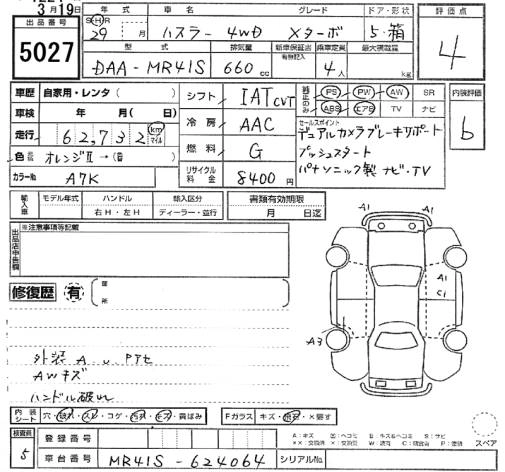 3月19日
出品番号 5027
年式 S H R 29 年 月
車名 ハスラー 4WD
グレード Xターボ
ドア・形状 5・箱
評価点 4
型式 DAA-MR41S
排気量 660 cc
新車保証書 有無記入
乗車定員 4人
最大積載量 kg
車歴 自家用・レンタ( )
車検 年 月( 日)
走行 62,732 km マイル
色 オレンジII→(
カラーNo A7K
シフト IAT CVT
冷房 AAC
燃料 G
リサイクル料金 8400円
純正のみ PS PW AW SR
ABS エアB TV ナビ
内装評価 b
セールスポイント
デュアルカメラブレーキサポート
プッシュスタート
パナソニック製ナビ・TV
輸入車 モデル年式 ハンドル 右H・左H 輸入区分 ディーラー・並行
書類有効期限 月 日迄
出品店申告欄 ※注意事項等記載
修復歴 有 箇所
A1 A1
A1
C1
A3
外装 A
AWキズ
ハンドル破れ
内装シート 穴・破れ・スレ・コゲ・汚れ・キズ・黄ばみ
Fガラス キズ・飛石・×要す
A:キズ
スペア
検査員 5
登録番号
車台番号 MR41S-624064
シリアルNo.